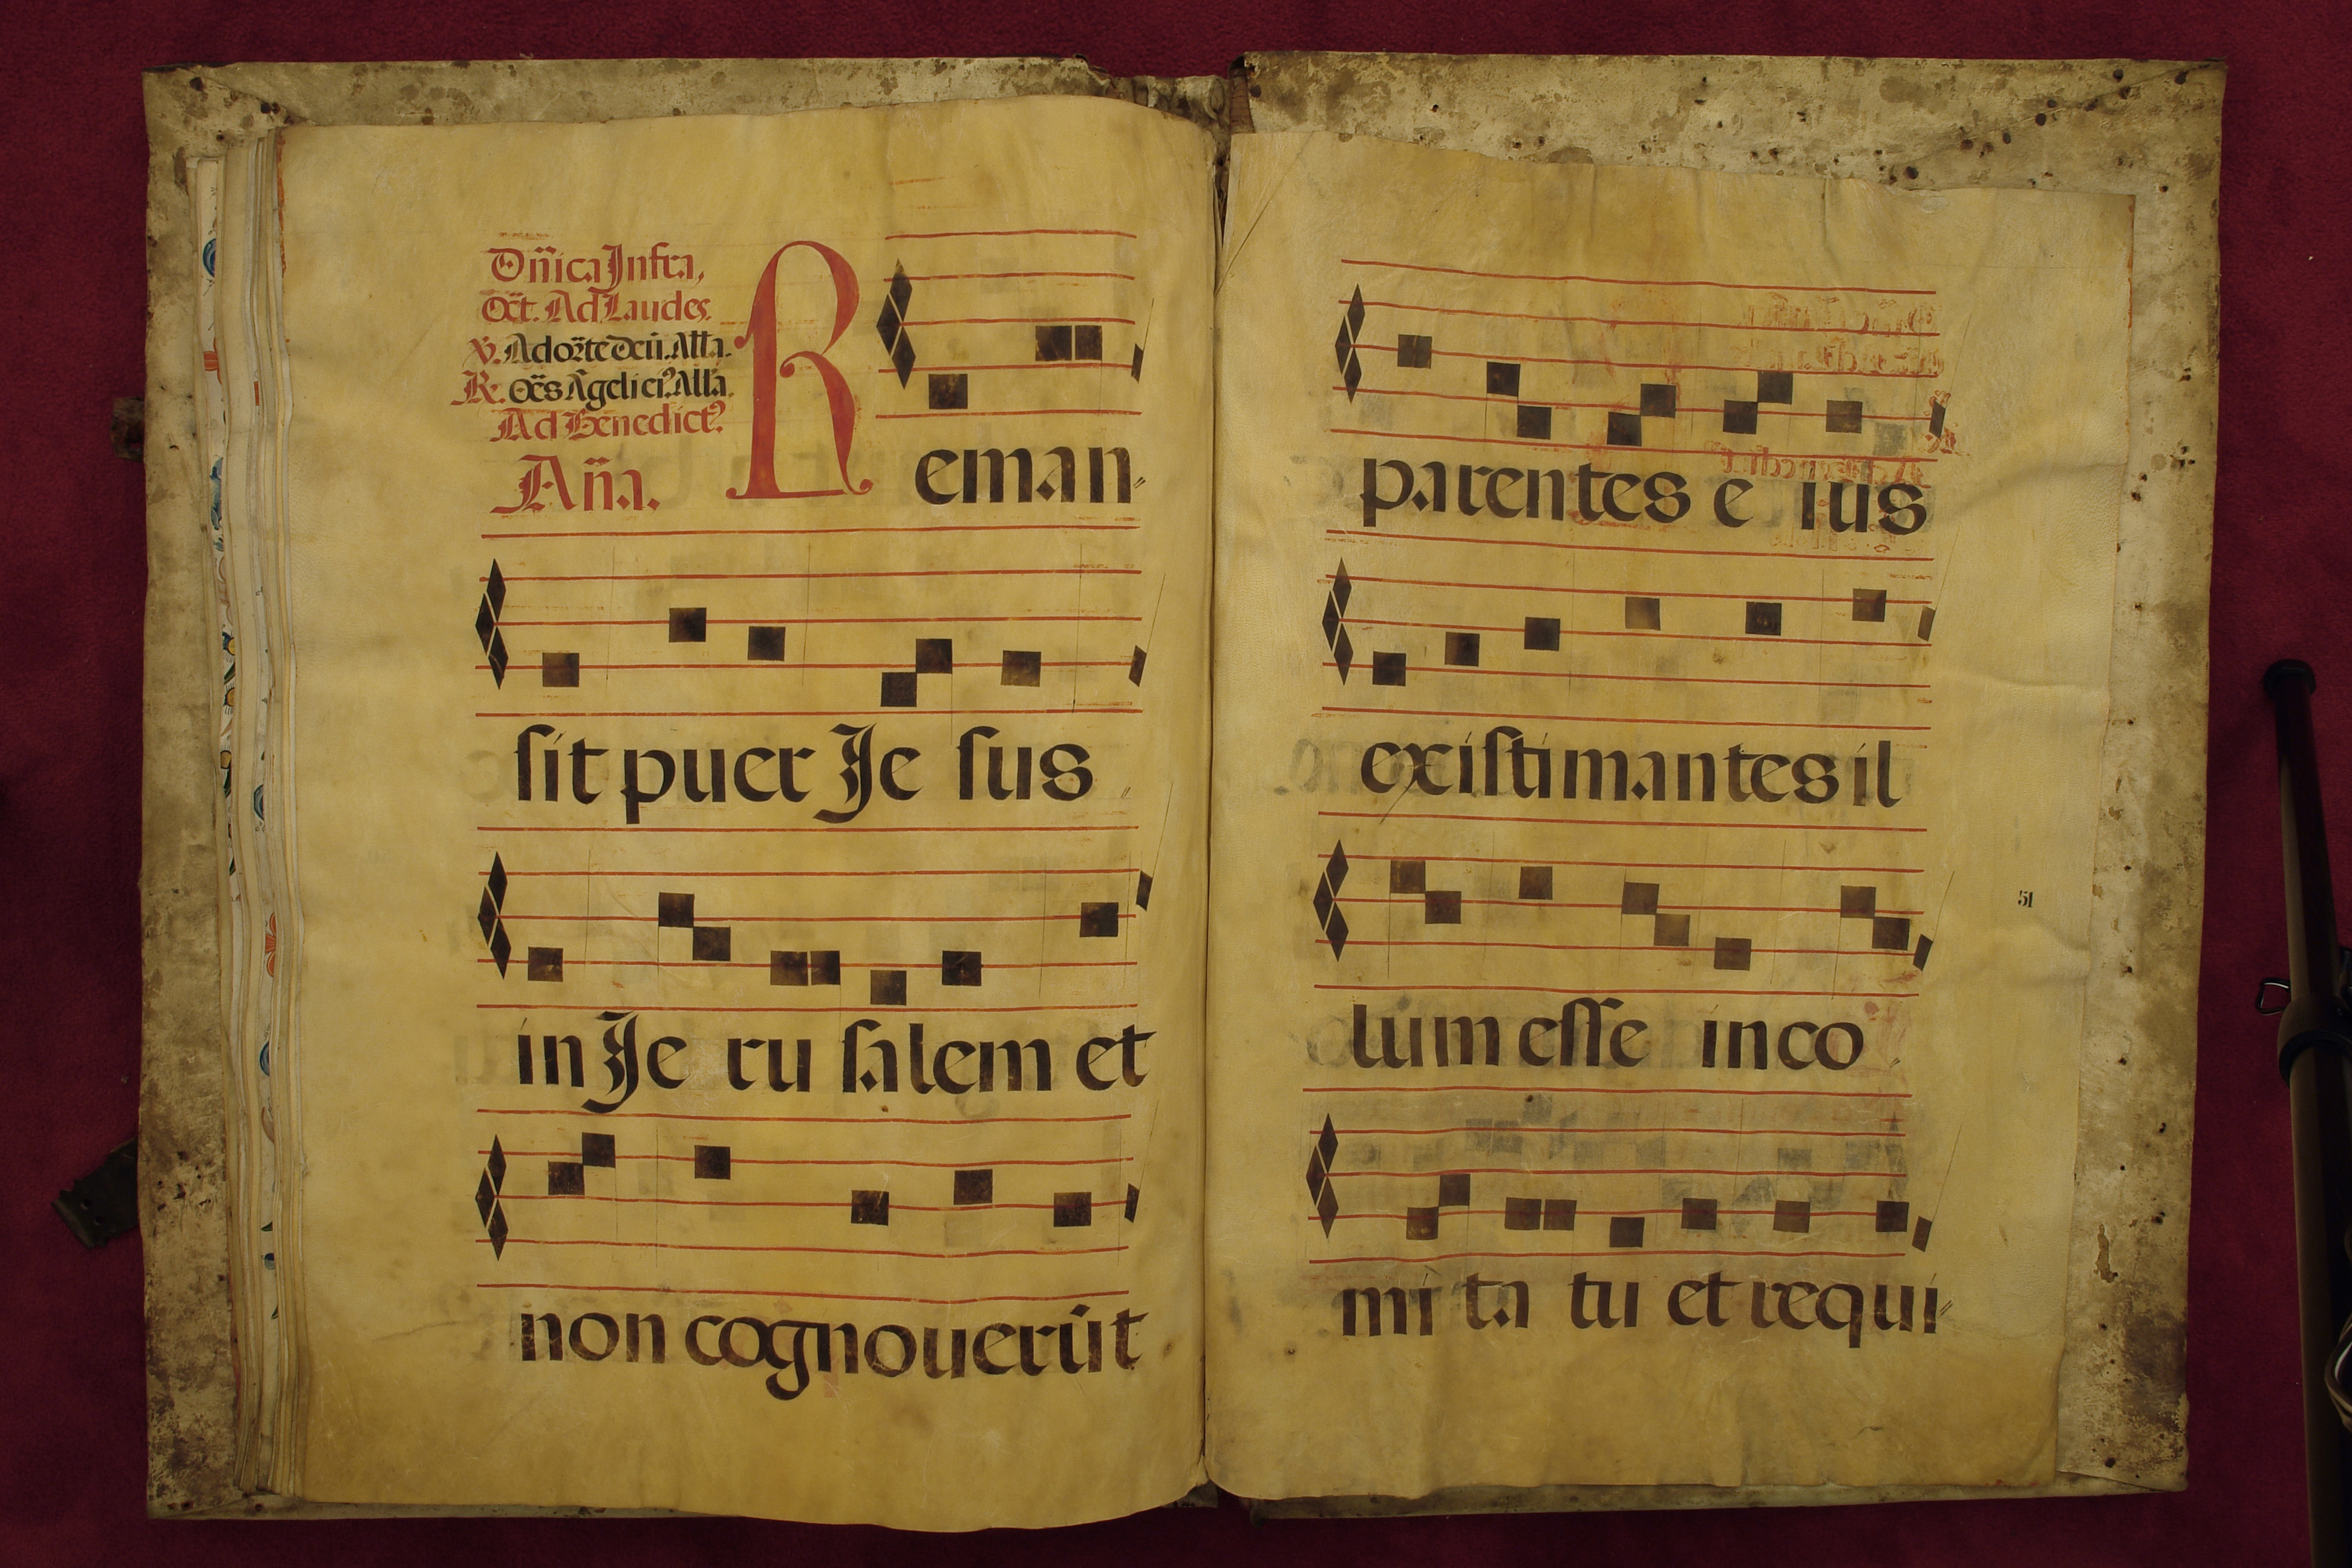 Dn̄ica Infra,
Oct̄. Ad Laudes.
v. Adorate Deū. Alla.
R. Oēs Āgeli ei⁹ Alla.
Ad Benedict⁹
Añа.
Reman-
sit puer Je sus
in Je ru salem et
non cognouerūt
parentes e ius
existimantes il
lum esse in co
mi ta tu et requi-
51